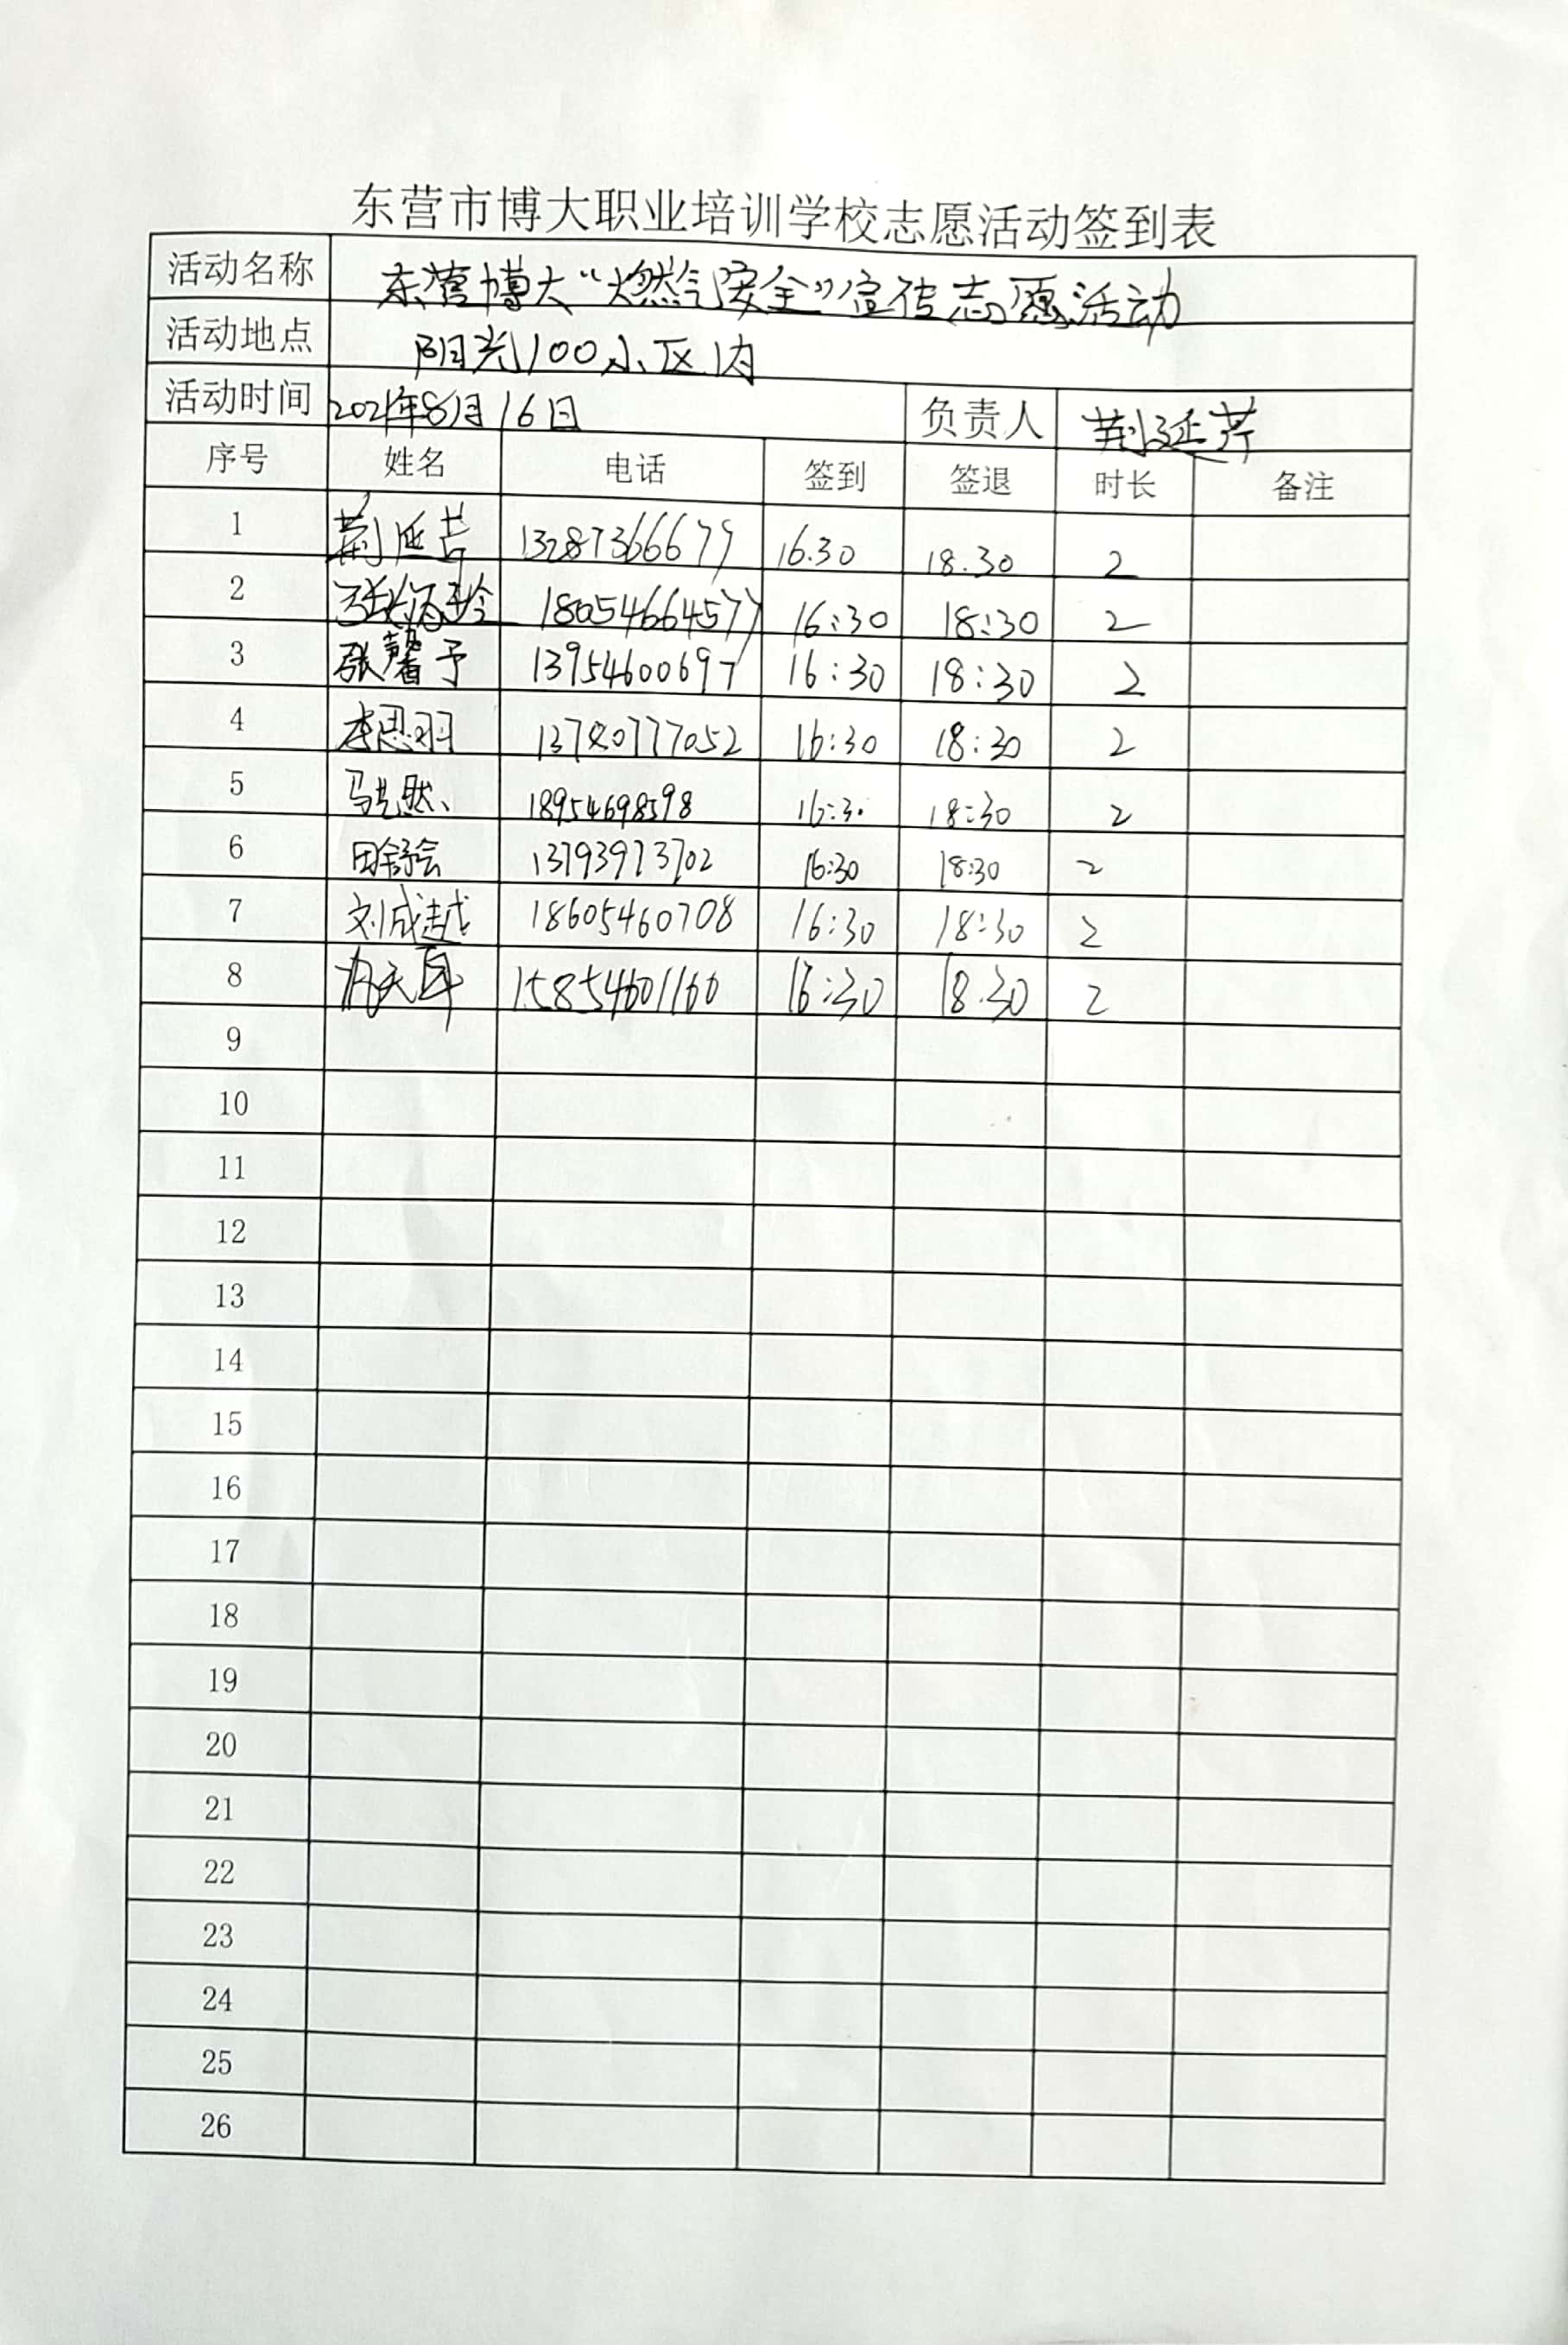 东营市博大职业培训学校志愿活动签到表
活动名称 东营博大“燃气安全”宣传志愿活动
活动地点 阳光100小区内
活动时间 2021年8月16日 负责人 荆延芹
序号 姓名 电话 签到 签退 时长 备注
1 13287366679 16.30 18.30 2
2 18054664577 16:30 18:30 2
3 张馨予 13954600697 16:30 18:30 2
4 李思羽 16:30 18:30 2
5 18954698598 16:30 18:30 2
6 田舒会 13793973702 16:30 18:30 2
7 刘成越 18605460708 16:30 18:30 2
8 15854601160 16:30 18:30 2
9
10
11
12
13
14
15
16
17
18
19
20
21
22
23
24
25
26